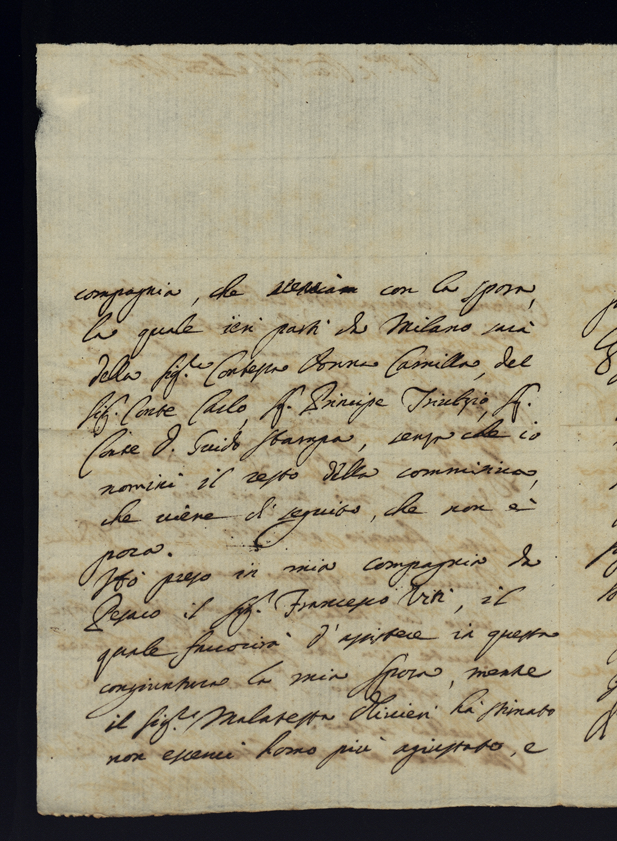 compagnia, che veniva con la sposa,
la quale ieri partì da Milano sarà
della Sig.ra Contessa Donna Camilla, del
Sig.r Conte Carlo, S.r Principe Triulzio, S.r
Conte D. Guido Stampa, senza che io
nomini il resto della comminiva,
che viene di seguito, che non è
poca.
Hò preso in mia compagnia da
Pesaro il Sig.r Francesco Viti, il
quale favorirà d'assistere in questa
congiuntura la mia Sposa, mentre
il Sig.re Malatesta Olivieri hà stimato
non esserci homo più agiustato, e